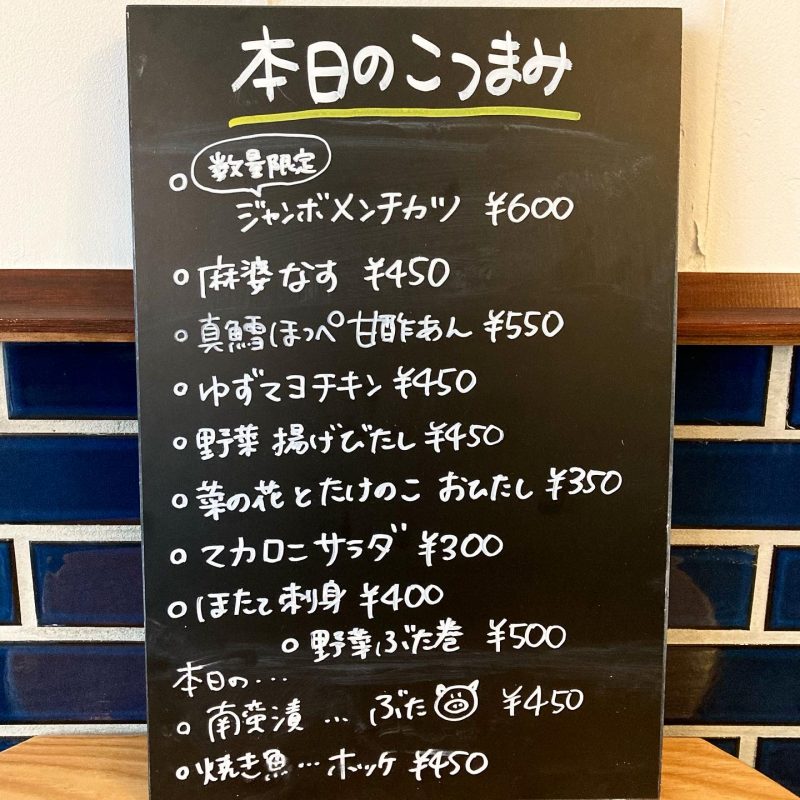 本日のこつまみ
数量限定
○ ジャンボメンチカツ ¥600
○ 麻婆なす ¥450
○ 真鱈ほっぺ甘酢あん ¥550
○ ゆずマヨチキン ¥450
○ 野菜 揚げびたし ¥450
○ 菜の花とたけのこ おひたし ¥350
○ マカロニサラダ ¥300
○ ほたて刺身 ¥400
○ 野菜ぶた巻 ¥500
本日の…
○ 南蛮漬 … ぶた ¥450
○ 焼き魚 … ホッケ ¥450